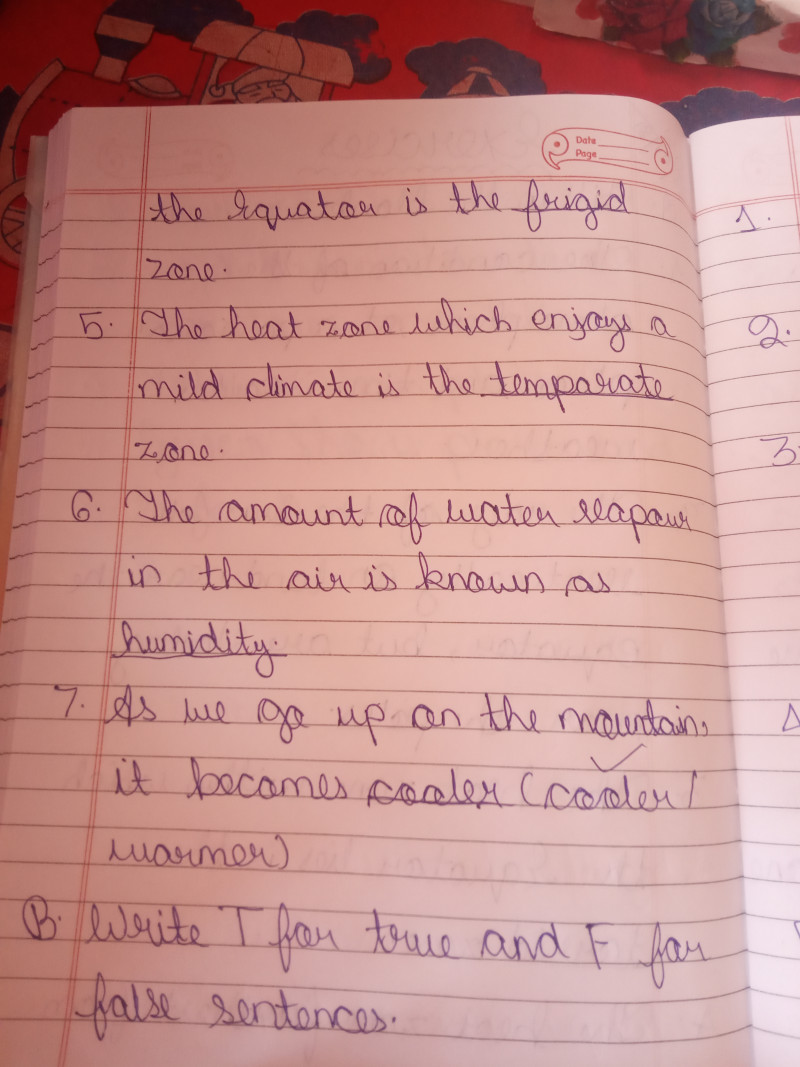 Date
Page
the Equator is the frigid
zone.
5. The heat zone which enjoys a
mild climate is the temparate
zone.
6. The amount of water vapour
in the air is known as
humidity.
7. As we go up on the mountain,
it becomes cooler (cooler /
warmer)
B. Write T for true and F for
false sentences.
1.
2.
3